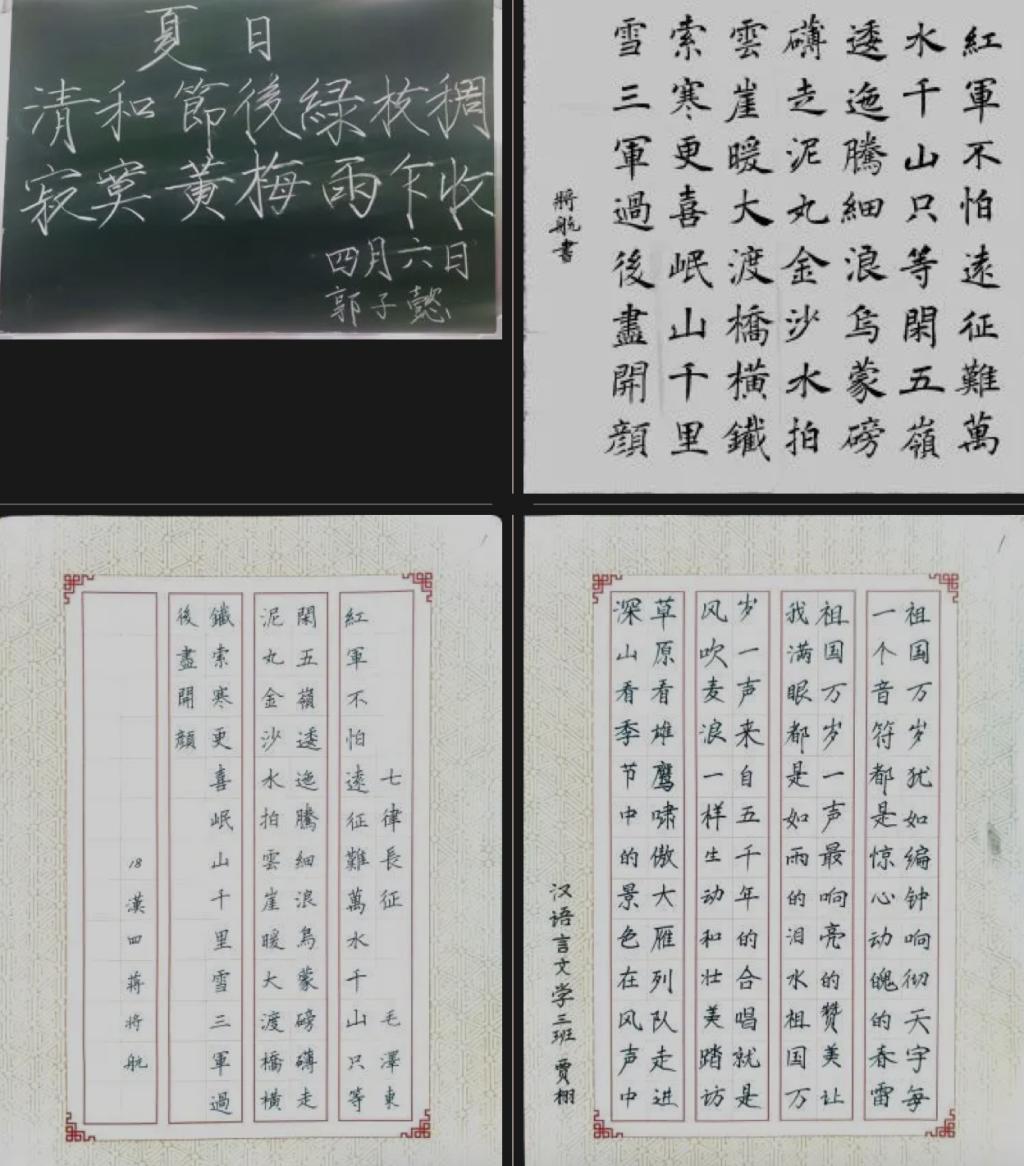 夏日
清和節後緑枝稠
寂寞黃梅雨乍收
四月六日
郭子懿
紅軍不怕遠征難萬
水千山只等閑五嶺
逶迤騰細浪烏蒙磅
礴走泥丸金沙水拍
雲崖暖大渡橋橫鐵
索寒更喜岷山千里
雪三軍過後盡開顔
將航書
七律長征 毛澤東
紅軍不怕遠征難萬水千山只等
閑五嶺逶迤騰細浪烏蒙磅礴走
泥丸金沙水拍雲崖暖大渡橋橫
鐵索寒更喜岷山千里雪三軍過
後盡開顔
18漢四蒋将航
祖国万岁犹如编钟响彻天宇每
一个音符都是惊心动魄的春雷
祖国万岁一声最响亮的赞美让
我满眼都是如雨的泪水祖国万
岁一声来自五千年的合唱就是
风吹麦浪一样生动和壮美踏访
草原看雄鹰啸傲大雁列队走进
深山看季节中的景色在风声中
汉语言文学三班 贾栩